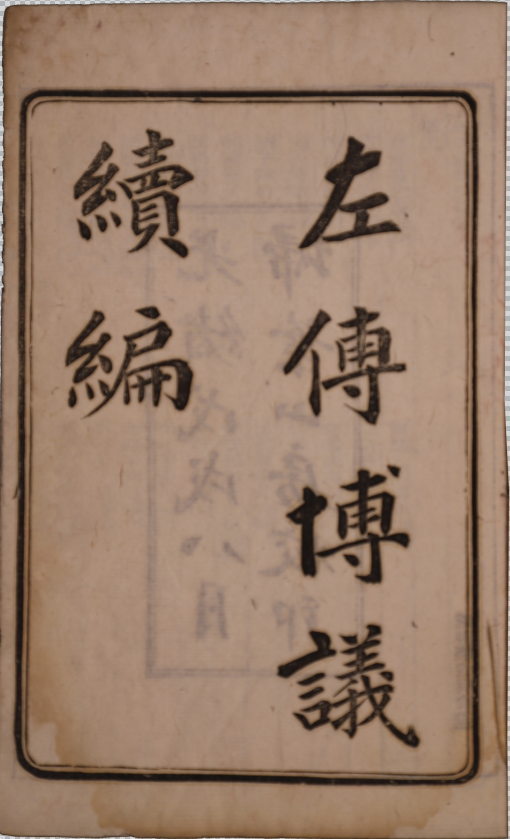 左傳博議
續編